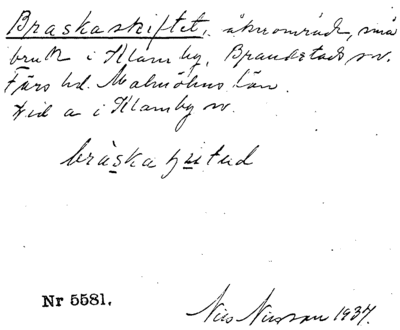 Braskaskiftet, åkerområde, små
bruk i Klamby, Brandstads sv.
Färs hd. Malmöhus län.
i Klamby sv.
bråska
Nr 5581.
Nils Nilsson 1937.